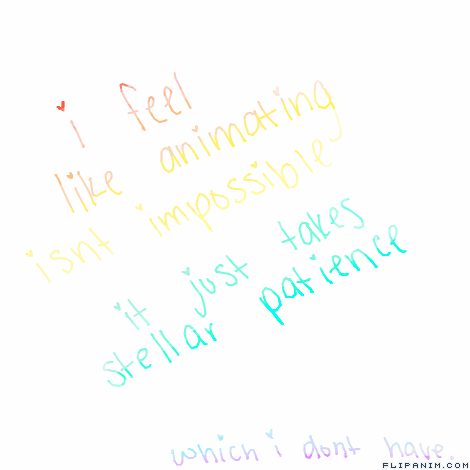 i feel
like animating
isnt impossible
it just takes
stellar patience
which i dont have.
FLIPANIM.COM